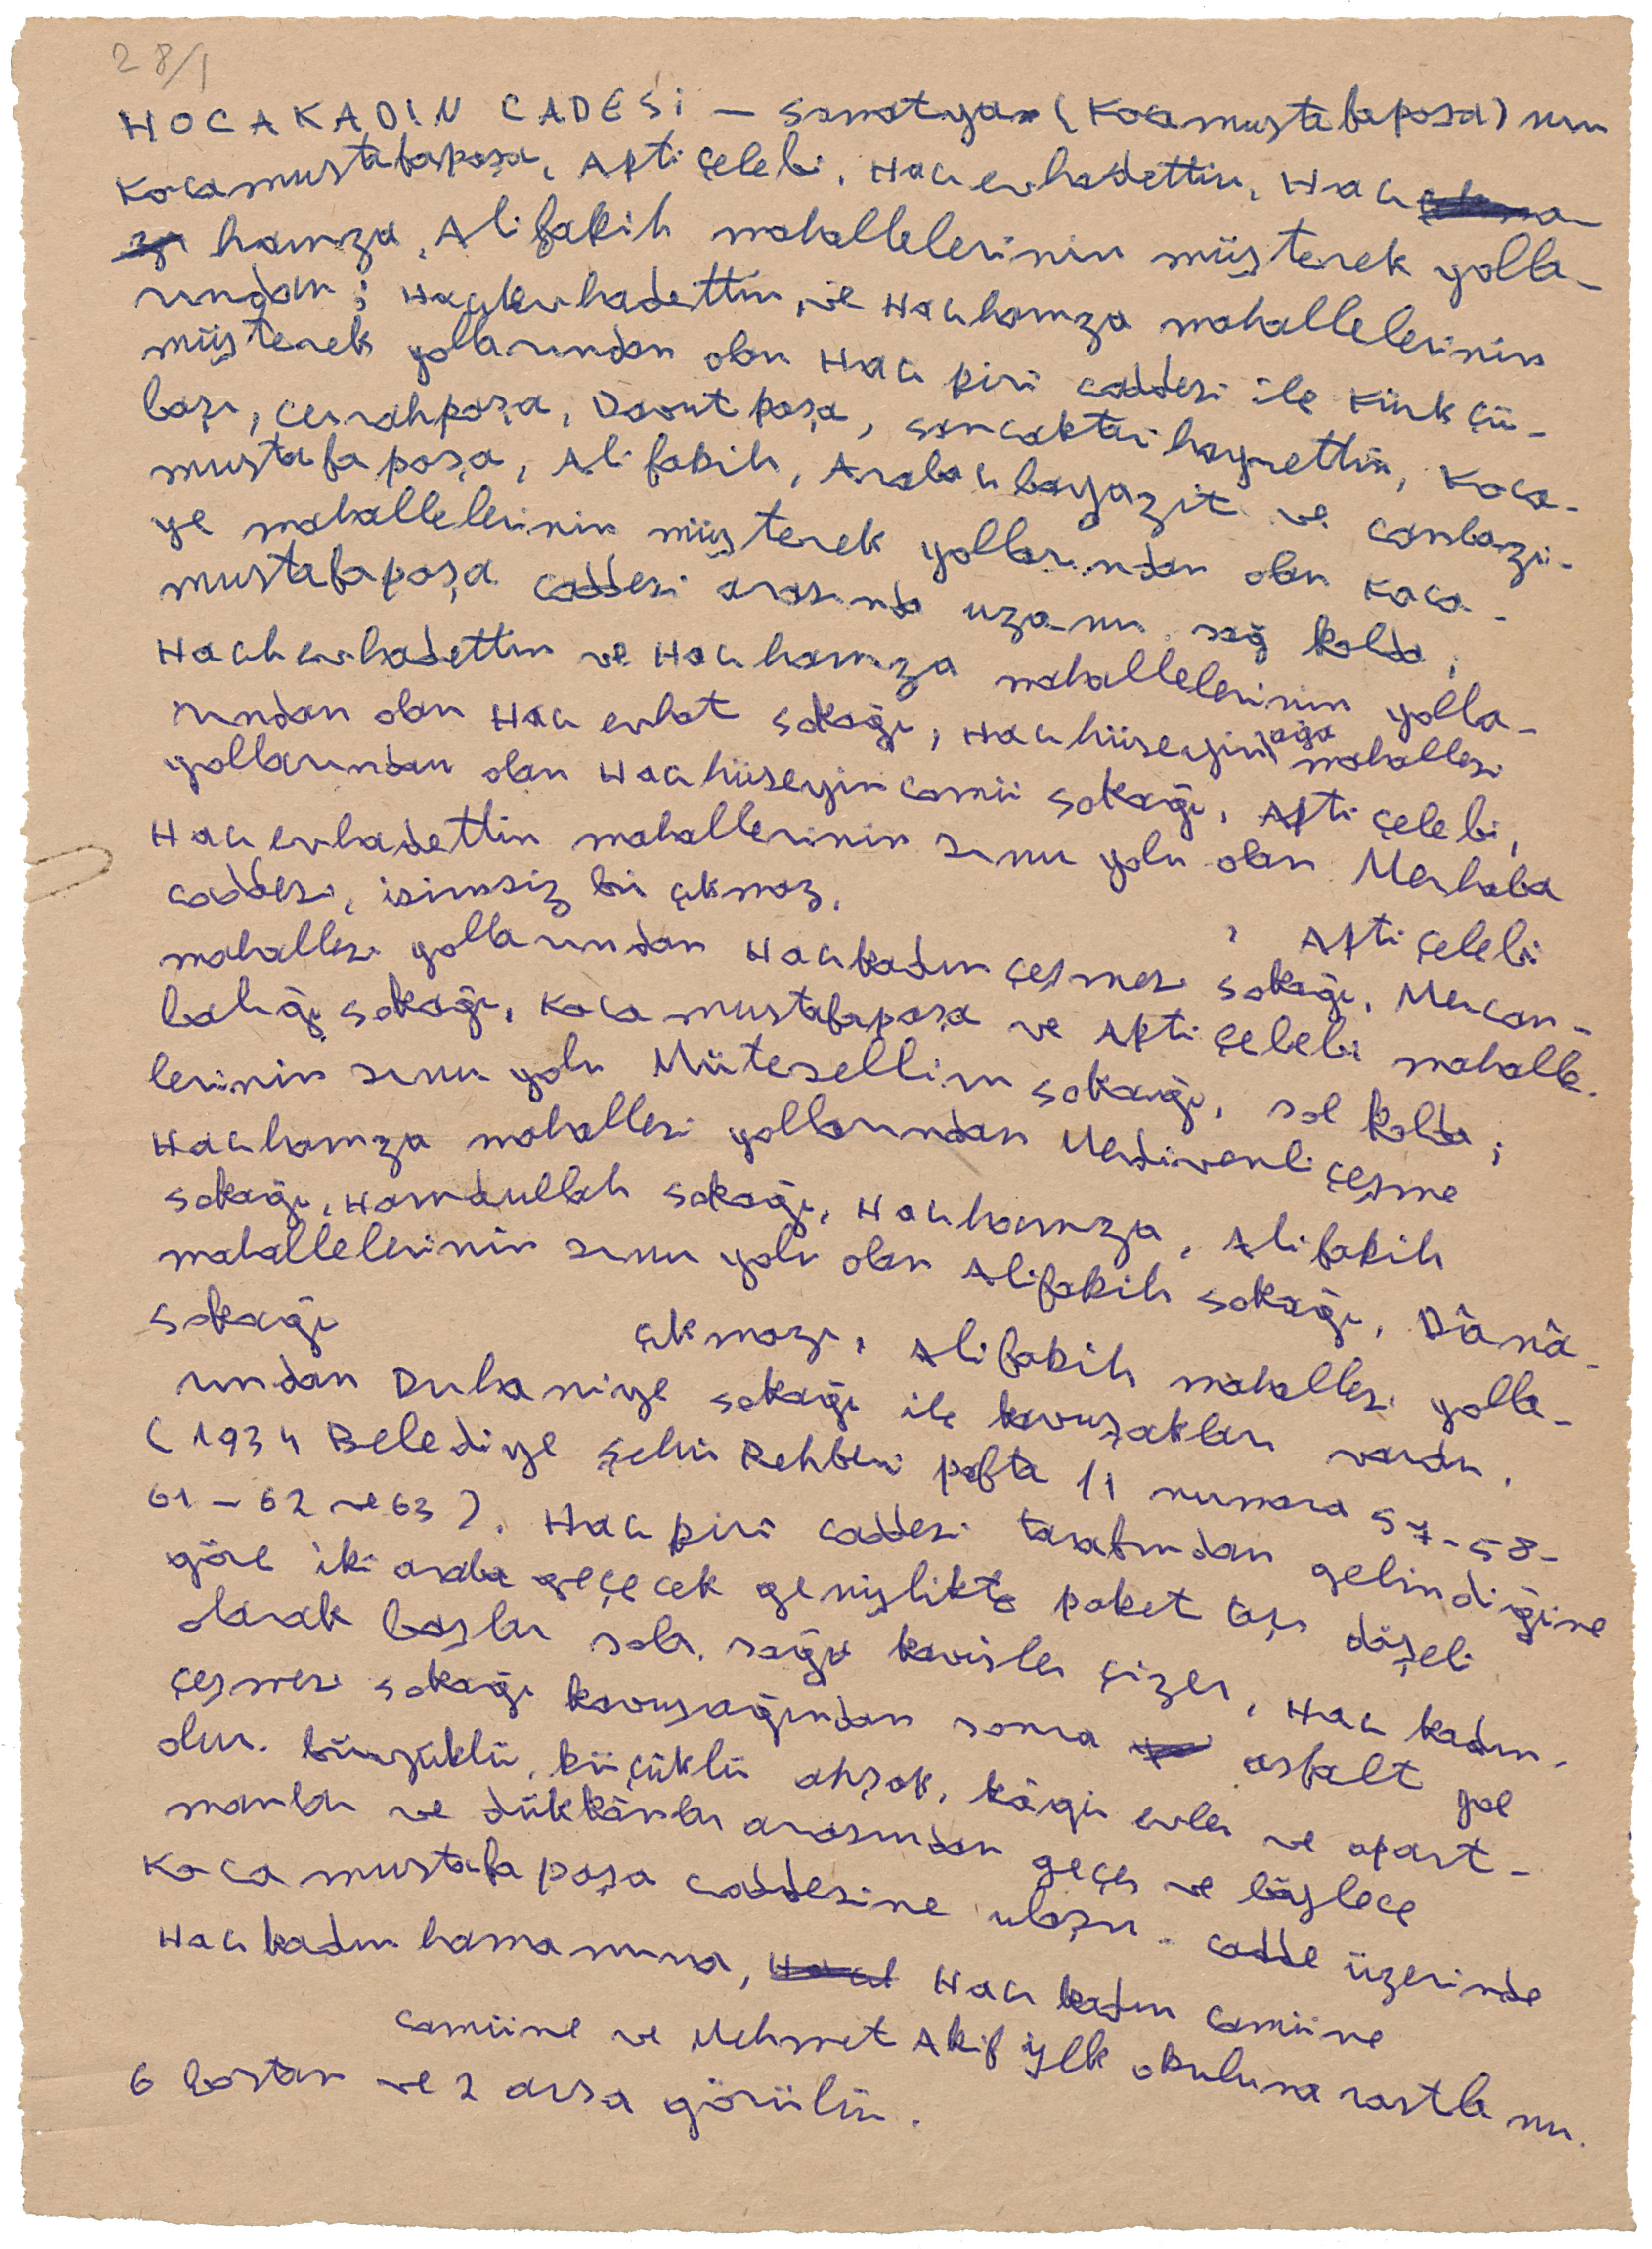 28/1
HOCAKADIN CADESİ — Samatya (Kocamustafapaşa) nın
Kocamustafapaşa, Apti çelebi, Hacıevhadettin, Hacı
hamza, Alifakih mahallelerinin müşterek yolla-
rından; Hacıevhadettin, ve Hacıhamza mahallelerinin
müşterek yollarından olan Hacı piri caddesi ile Kürkçü-
başı, Cerrahpaşa, Davutpaşa, Sancaktar hayrettin, Koca-
mustafapaşa, Alifakih, Arabacıbayazit ve Canbazi-
ye mahallelerinin müşterek yollarından olan Koca-
mustafapaşa caddesi arasında uzanır sağ kolda;
Hacıevhadettin ve Hacıhamza mahallelerinin yolla-
rından olan Hacı evhat sokağı, Hacıhüseyin ağa mahallesi
yollarından olan Hacıhüseyin camii sokağı, Apti çelebi,
Hacıevhadettin mahallerinin sınır yolu olan Merhaba
caddesi, isimsiz bir çıkmaz, , Apti çelebi
mahallesi yollarından Hacıkadın çeşmesi sokağı, Mercan-
balığı sokağı, Koca mustafapaşa ve Apti çelebi mahalle-
lerinin sınır yolu Mütesellim sokağı, sol kolda;
Hacıhamza mahallesi yollarından Merdivenli çeşme
sokağı, Hamdullah sokağı, Hacıhamza, Alifakih
mahallelerinin sınır yolu olan Alifakih sokağı, Dânâ-
sokağı çıkmazı, Alifakih mahallesi yolla-
rından Duhaniye sokağı ile kavuşakları vardır.
(1934 Belediye Şehir Rehberi pafta 11 numara 57-58-
61-62 ve 63). Hacı piri caddesi tarafından gelindiğine
göre iki araba geçecek genişlikte paket taşı döşeli
olarak başlar sola, sağa kavisler çizer, Hacı kadın-
çeşmesi sokağı kavuşağından sonra asfalt yol
olur. büyüklü, küçüklü ahşap, kâgir evler ve apart-
manlar ve dükkânlar arasından geçer ve böylece
Koca mustafa paşa caddesine ulaşır. cadde üzerinde
Hacıkadın hamamına, Hacı kadın camiine
camiine ve Mehmet Akif ilk okuluna rastlanır.
6 bostan ve 2 arsa görülür.